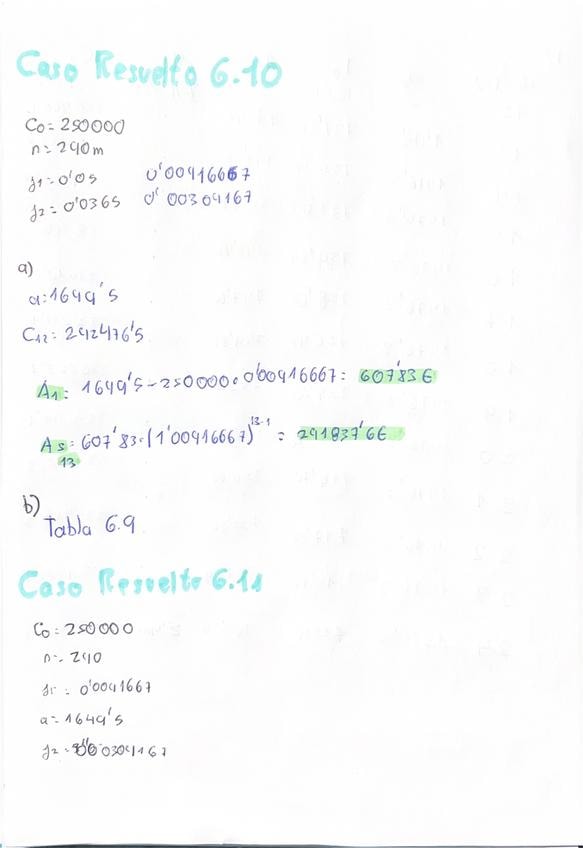 Caso Resuelto 6.10
C0=250000
n=240m
j1=0'05 0'00416667
j2=0'0365 0'00304167
a)
a:1649'5
C12=242476'5
A1: 1649'5-250000·0'00416667: 607'83€
As: 607'83·(1'00416667)^13-1 = 241837'6€
13
b)
Tabla 6.9
Caso Resuelto 6.11
C0=250000
n=240
j1=0'0041667
a=1649'5